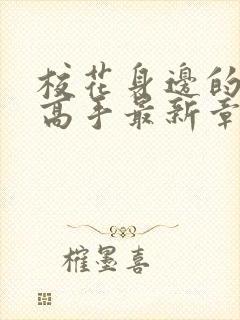 校花身邊的
高手最新章
榷墨喜